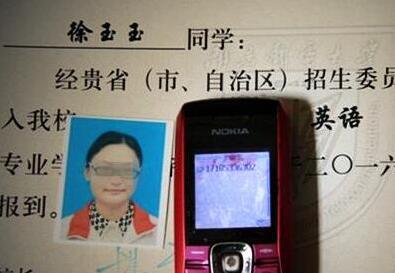 徐玉玉 同学:
经贵省(市、自治区)招生委员
入我校 英语
专业学 二〇一六
报到。
NOKIA